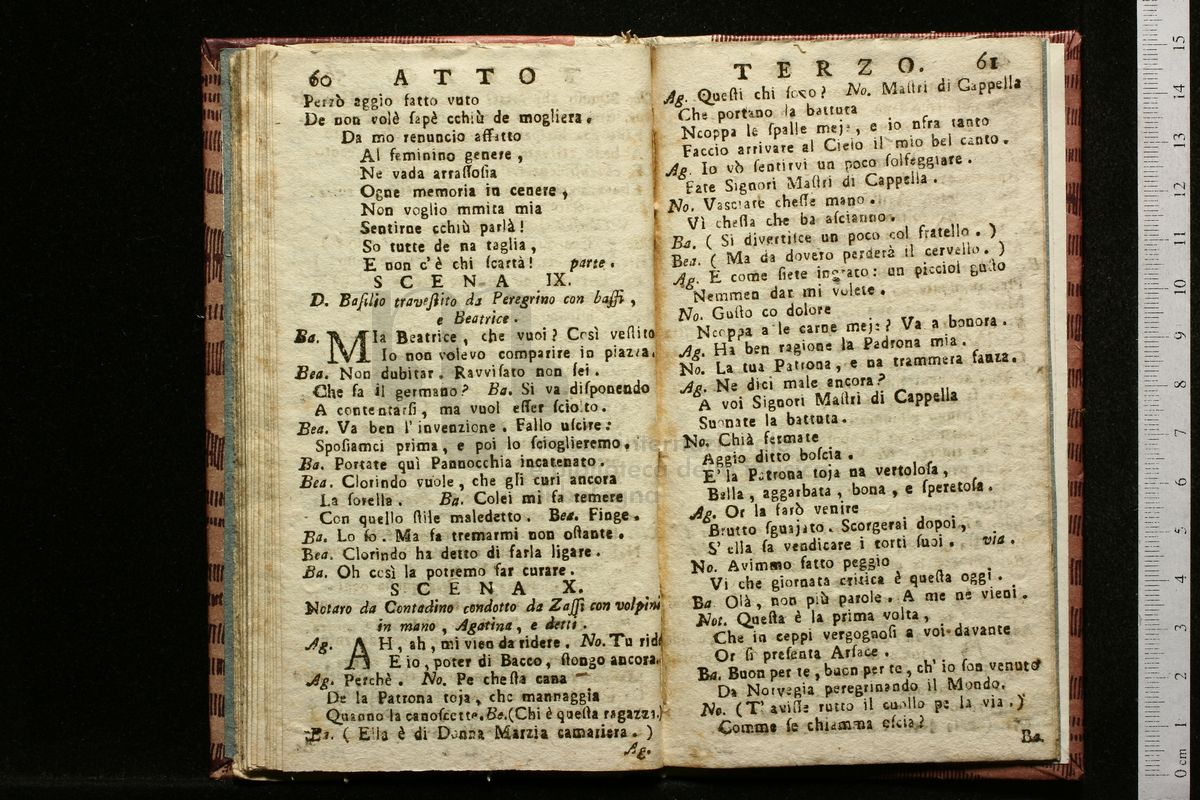 60 ATTO
Perzò aggio fatto vuto
De non volè sapè cchiù de mogliera.
Da mo renuncio affatto
Al feminino genere,
Ne vada arrassosia
Ogne memoria in cenere,
Non voglio mmita mia
Sentirne cchiù parlà!
So tutte de na taglia,
E non c'è chi scartà! parte.
SCENA IX.
D. Basilio travestito da Peregrino con baffi,
e Beatrice.
Ba. MIa Beatrice, che vuoi? Così vestito
Io non volevo comparire in piazza.
Bea. Non dubitar. Ravvisato non sei.
Che fa il germano? Ba. Si va disponendo
A contentarsi, ma vuol esser sciolto.
Bea. Va ben l'invenzione. Fallo uscire:
Sposiamci prima, e poi lo scioglieremo.
Ba. Portate quì Pannocchia incatenato.
Bea. Clorindo vuole, che gli curi ancora
La sorella. Ba. Colei mi fa temere
Con quello stile maledetto. Bea. Finge.
Ba. Lo so. Ma fa tremarmi non ostante.
Bea. Clorindo ha detto di farla ligare.
Ba. Oh così la potremo far curare.
SCENA X.
Notaro da Contadino condotto da Zaffi con volpini
in mano, Agatina, e detti.
Ag. AH, ah, mi vien da ridere. No. Tu ride
E io, poter di Bacco, stongo ancora.
Ag. Perchè. No. Pe chesta cana
De la Patrona toja, che mannaggia
Quanno la canoscette. Ba. (Chi è questa ragazza.)
Ba. (Ella è di Donna Marzia camariera.)
Ag.
TERZO. 61
Ag. Questi chi sono? No. Mastri di Cappella
Che portano la battuta
Ncoppa le spalle meje, e io nfra tanto
Faccio arrivare al Cielo il mio bel canto.
Ag. Io vò sentirvi un poco solfeggiare.
Fate Signori Mastri di Cappella.
No. Vasciate chesse mano.
Vì chesta che ba ascianno.
Ba. (Si divertisce un poco col fratello.)
Bea. (Ma da dovero perderà il cervello.)
Ag. E come siete ingrato: un picciol gusto
Nemmen dar mi volete.
No. Gusto co dolore
Ncoppa a le carne meje? Va a bonora.
Ag. Ha ben ragione la Padrona mia.
No. La tua Patrona, e na trammera fauza.
Ag. Ne dici male ancora?
A voi Signori Mastri di Cappella
Suonate la battuta.
No. Chià fermate
Aggio ditto boscia.
E' la Patrona toja na vertolosa,
Bella, aggarbata, bona, e speretosa.
Ag. Or la farò venire
Brutto sguajato. Scorgerai dopoi,
S' ella sa vendicare i torti suoi. via.
No. Avimmo fatto peggio
Vi che giornata critica è questa oggi.
Ba. Olà, non più parole. A me ne vieni.
Not. Questa è la prima volta,
Che in ceppi vergognosi a voi davante
Or si presenta Arsace.
Ba. Buon per te, buon per te, ch' io son venuto
Da Norvegia peregrinando il Mondo.
No. (T' avisse rutto il cuollo pe la via.)
Comme se chiamma oscia?
Ba.